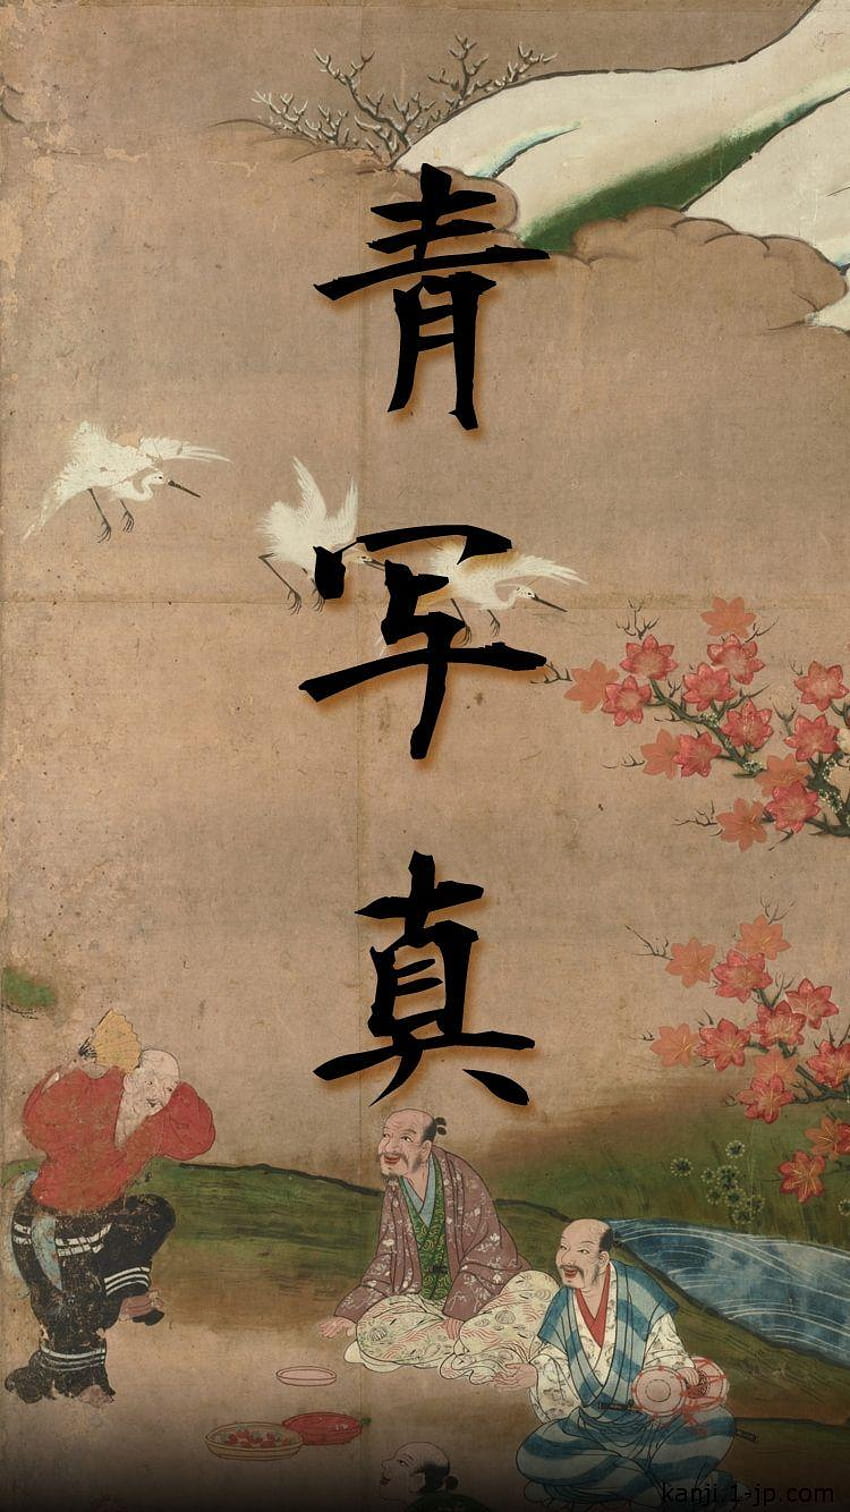 青写真
kanji.1-jp.com